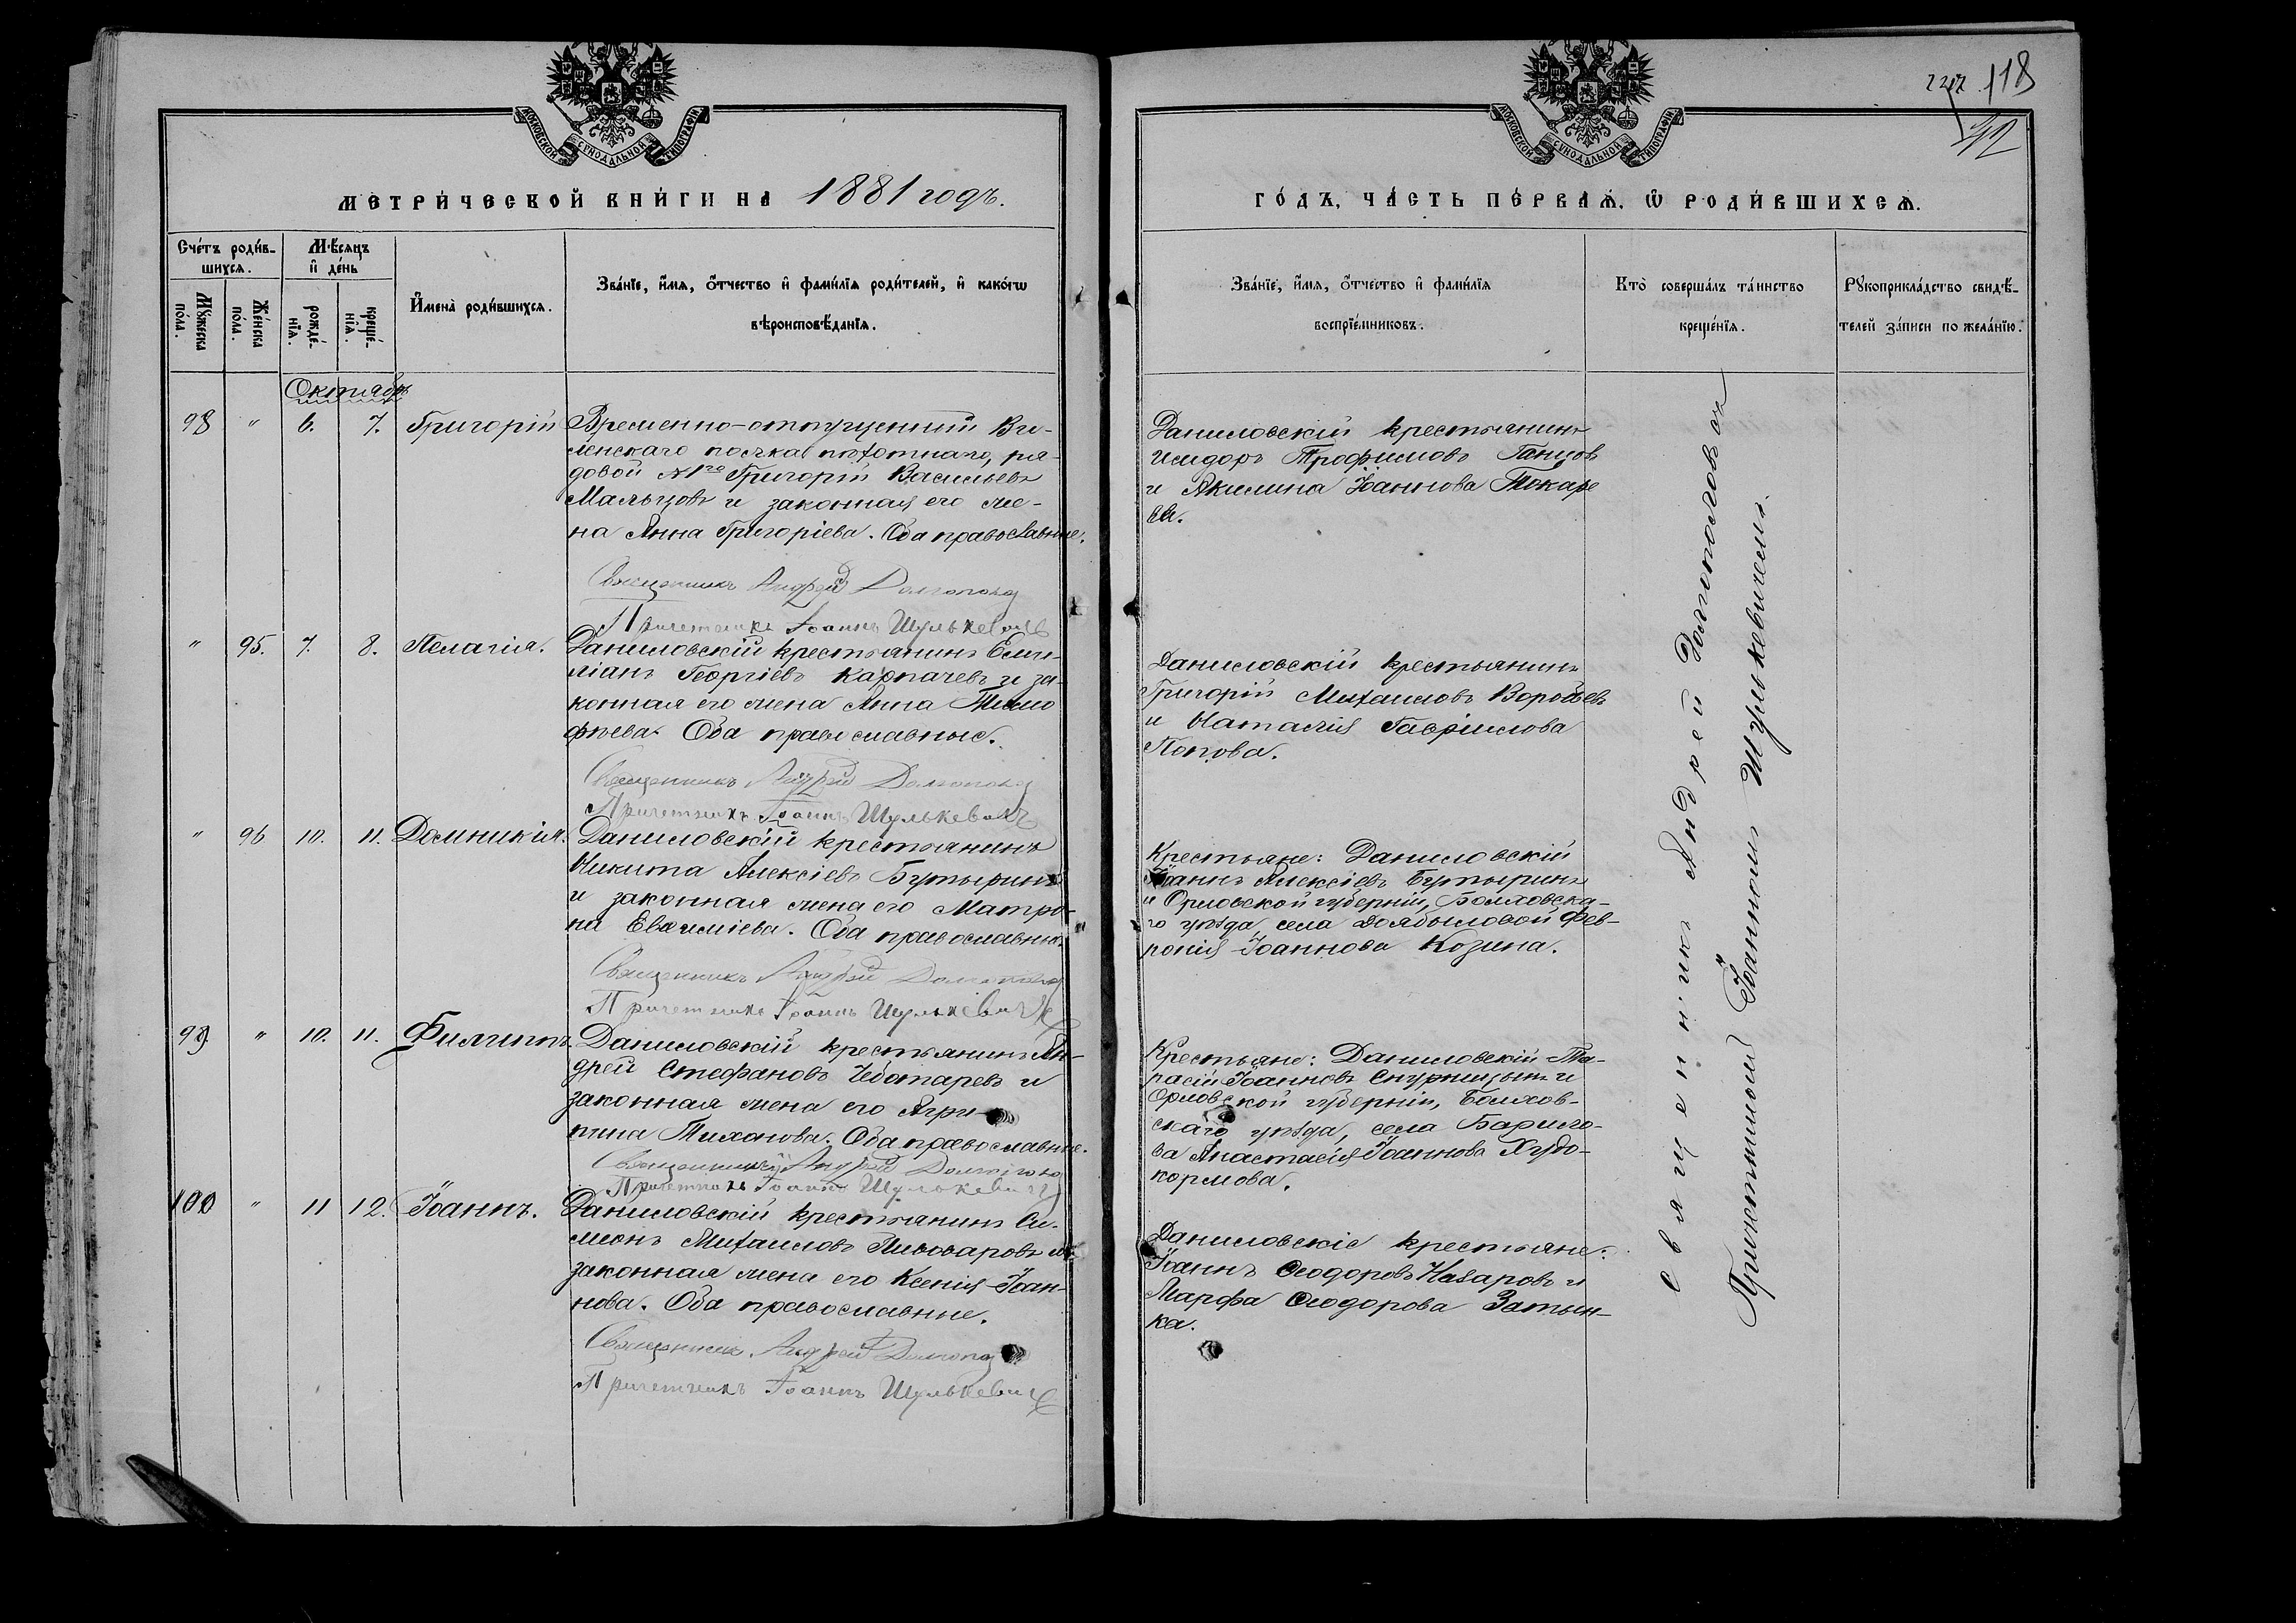 МОСКОВСКОЙ СѴНОДАЛЬНОЙ ТИПОГРАФІИ
МЕТРИ́ЧЕСКОЙ КНИ́ГИ НА 1881 годъ.
Сче́тъ роди́в-
шихся.
Мѣ́сяцъ
и҆ де́нь
Мꙋ́жеска
по́ла.
Же́нска
по́ла.
рожде́-
нїѧ.
креще́-
нїѧ.
И҆мена̀ роди́вшихсѧ.
Зва́нїе, и҆́мѧ, ѻ҆́тчество и҆ фами́лїѧ роди́телей, и҆ како́гѡ
вѣроисповѣ́данїѧ.
Октябрь
98 " 6. 7. Григорій
Временно-отпущенный Ви-
ленскаго полка пѣхотнаго, ря-
довой №1го Григорій Васильевъ
Мальцовъ и законная его же-
на Анна Григоріева. Оба православные.
Священникъ Андрей Долгопол
Причетникъ Іоаннъ Шулькевичъ
" 95. 7. 8. Пелагія.
Даниловскій крестьянинъ Еми-
ліанъ Георгіевъ Карпачевъ и за-
конная его жена Анна Тимо
фѣева. Оба православные.
Священникъ Андрей Долгопол
Причетникъ Іоаннъ Шулькевичъ
" 96 10. 11. Домникія.
Даниловскій крестьянинъ
Никита Алексіевъ Бутыринъ
и законная жена его Матро-
на Евѳиміева. Оба православные.
Священникъ Андрей Долгопол
Причетникъ Іоаннъ Шулькевичъ
99. " 10. 11. Филиппъ.
Даниловскій крестьянинъ Ан-
дрей Стефановъ Чеботаревъ и
законная жена его Агри-
пина Тихонова. Оба православные.
Священникъ Андрей Долгопол
Причетникъ Іоаннъ Шулькевичъ
100 " 11 12. Іоаннъ.
Даниловскій крестьянинъ Си-
меонъ Михаиловъ Пивоваровъ и
законная жена его Ксенія Іоан-
нова. Оба православные.
Священникъ Андрей Долгопол
Причетникъ Іоаннъ Шулькевичъ
118
МОСКОВСКОЙ СѴНОДАЛЬНОЙ ТИПОГРАФІИ
ГО́ДЪ, ЧА́СТЬ ПЕ́РВАѦ, Ѡ҆ РОДИ́ВШИХСѦ.
Зва́нїе, и҆́мѧ, ѻ҆́тчество и҆ фами́лїѧ
воспрїе́мниковъ.
Кто̀ соверша́лъ та́инство
креще́нїѧ.
Рꙋкоприкла́дство свидѣ́-
телей за́писи по жела́нїю.
Даниловскій крестьянинъ
Исидоръ Трофимовъ Ганцов
и Акилина Іоаннова Токаре
ва.
Даниловскій крестьянинъ
Григорій Михаиловъ Воробьевъ
и Наталія Гавріилова
Попова.
Крестьяне: Даниловскій
Іоаннъ Алексіевъ Бутыринъ
и Орловской губерніи, Болховска-
го уѣзда, села Долбыловой Фев-
ронія Іоаннова Козина.
Крестьяне: Даниловскій Та-
расій Іоанновъ и
Орловской губерніи, Болхов-
скаго уѣзда, села Барило-
ва Анастасія Іоаннова Худо-
кормова.
Даниловскіе крестьяне:
Іоаннъ Ѳеодоровъ Назаровъ и
Марфа Ѳеодорова Затын-
ка.
Священникъ Андрей Долгополовъ съ
Причетникомъ Іоанномъ Шулькевичемъ.